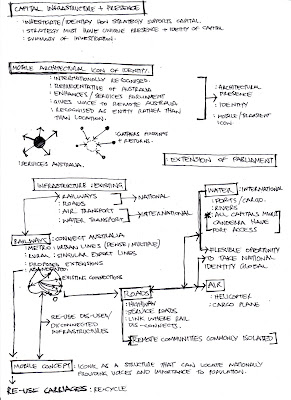 CAPITAL INFRASTRUCTURE + PRESENCE
: INVESTIGATE/IDENTIFY HOW STRATEGY SUPPORTS CAPITAL.
: STRATEGY MUST HAVE UNIQUE PRESENCE + IDENTITY OF CAPITAL
: SUMMARY OF INVESTIGATION.
MOBILE ARCHITECTURAL ICON OF IDENTITY
: INTERNATIONALLY RECOGNISED.
: REPRESENTATIVE OF AUSTRALIA
: ENHANCES/SERVICES PARLIAMENT
: GIVES VOICE TO REMOTE AUSTRALIA
: RECOGNISED AS ENTITY RATHER THAN
THAN LOCATION.
: ARCHITECTURAL
PRESENCE
: IDENTITY
: MOBILE/
ICON
: GATHERS
+ RETURNS.
: SERVICES AUSTRALIA.
EXTENSION OF PARLIAMENT
INFRASTRUCTURE: EXISTING
: RAILWAYS
: ROADS
NATIONAL
: AIR TRANSPORT
: WATER TRANSPORT
INTERNATIONAL
WATER: INTERNATIONAL
: PORTS/CARGO.
: RIVERS
: ALL CAPITALS MINUS
CANBERRA HAVE
PORT ACCESS
: FLEXIBLE OPPORTUNITY
TO TAKE NATIONAL
IDENTITY GLOBAL
RAILWAYS: CONNECT AUSTRALIA
: METRO: URBAN LINES (DENSE/MULTIPLE)
: RURAL: SINGULAR EXPORT LINES
: PROPOSED EXTENSIONS
: ABANDONED
EXISTING CONNECTIONS
AIR
: HELICOPTER
: CARGO PLANE
ROADS
: HIGHWAY
: SERVICE ROADS
: LINK WHERE RAIL
DIS-CONNECTS.
: RE-USE DIS-USED/
DISCONNECTED
INFRASTRUCTURES
REMOTE COMMUNITIES COMMONLY ISOLATED
MOBILE CONCEPT: ICONIC AS A STRUCTURE THAT CAN LOCATE NATIONALLY
PROVIDING VOICES AND IMPORTANCE TO POPULATION.
RE-USE CARRIAGES: RE-CYCLE